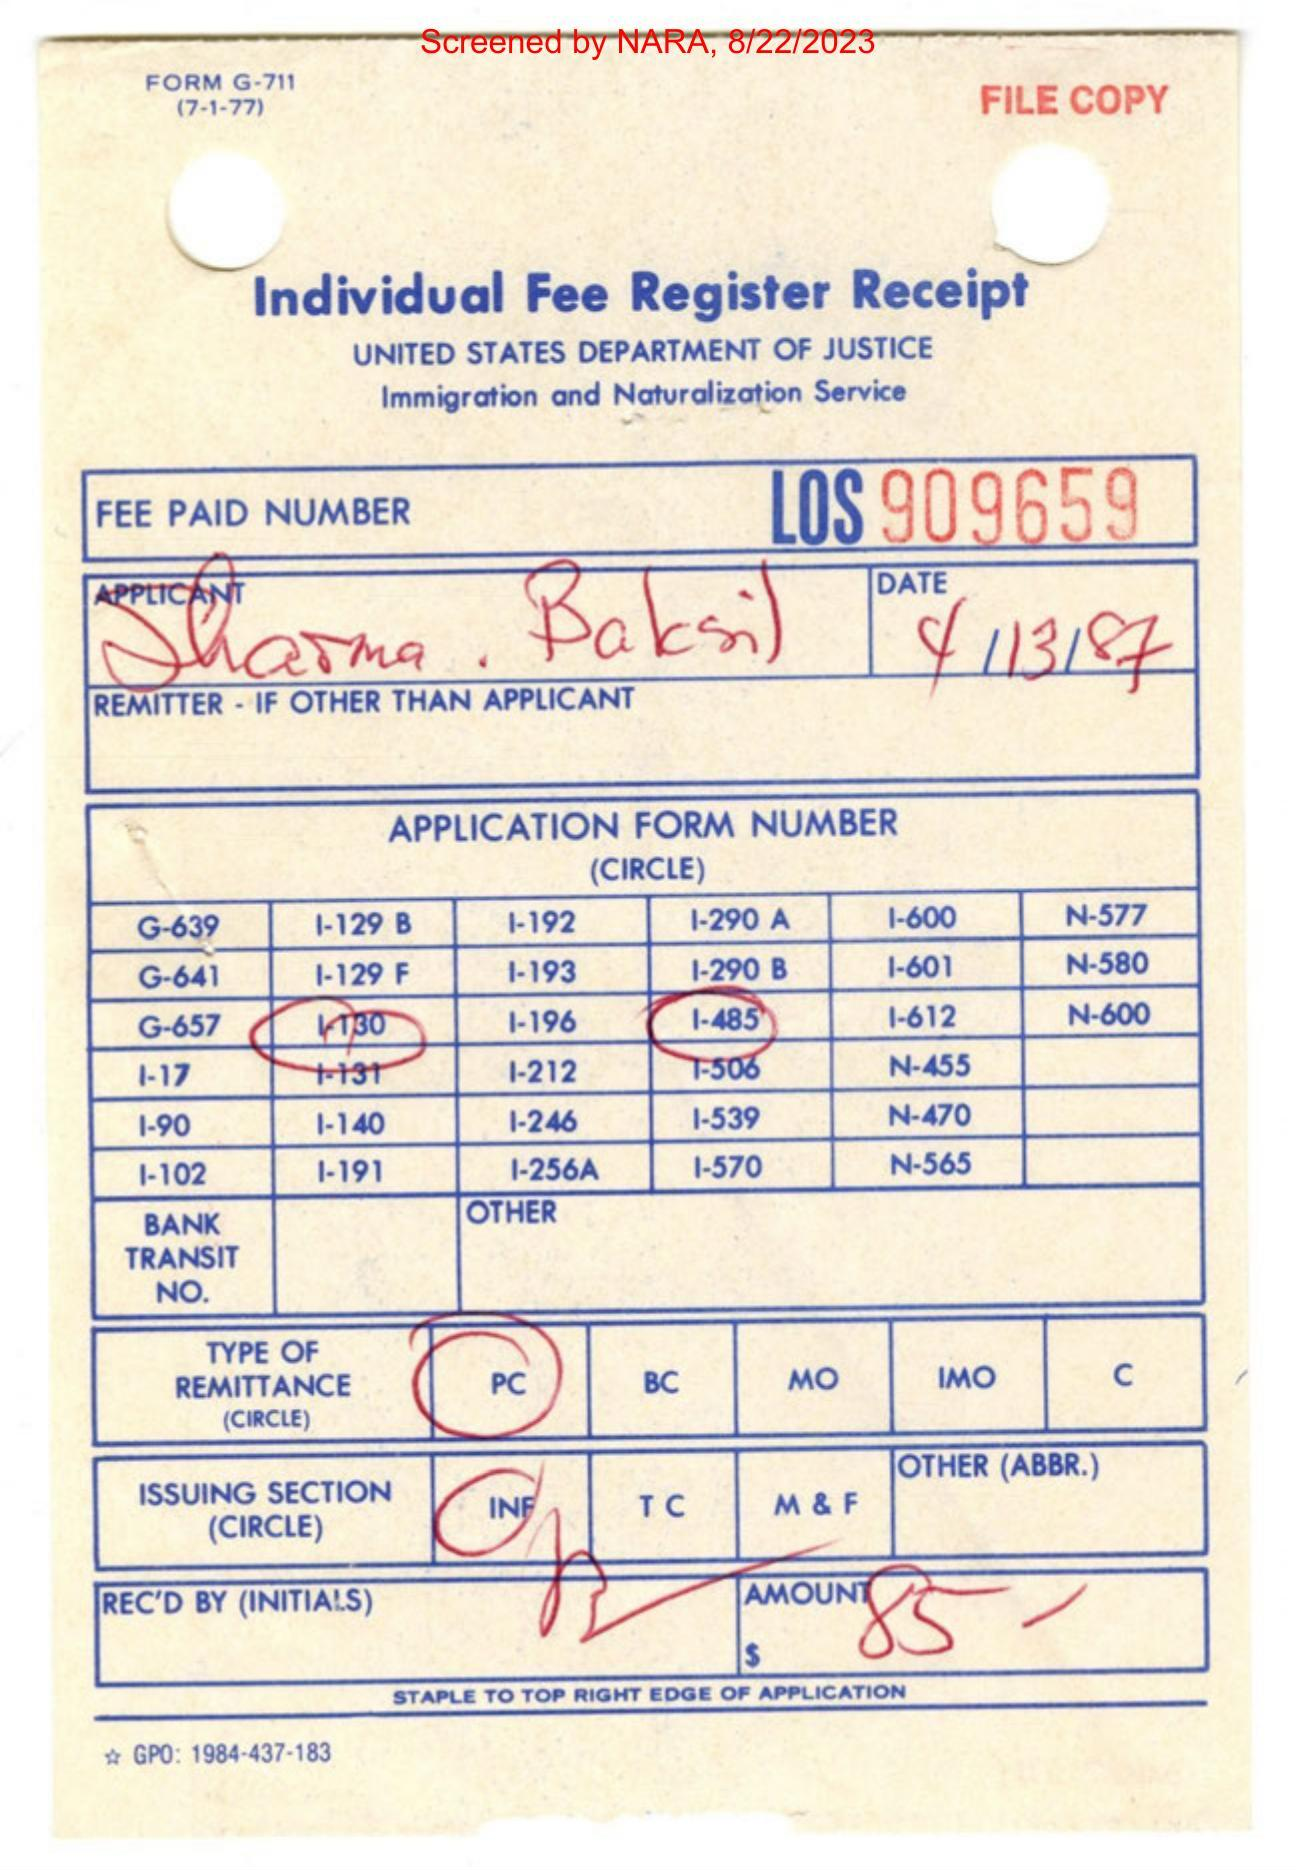 Screened by NARA, 8/22/2023
FORM G-711
(7-1-77)
FILE COPY
Individual Fee Register Receipt
UNITED STATES DEPARTMENT OF JUSTICE
Immigration and Naturalization Service
FEE PAID NUMBER LOS 909659
APPLICANT DATE
Sharma. Baksil 4/13/87
REMITTER - IF OTHER THAN APPLICANT
APPLICATION FORM NUMBER
(CIRCLE)
G-639 I-129 B I-192 I-290 A I-600 N-577
G-641 I-129 F I-193 I-290 B I-601 N-580
G-657 I-130 I-196 I-485 I-612 N-600
I-17 I-131 I-212 I-506 N-455
I-90 I-140 I-246 I-539 N-470
I-102 I-191 I-256A I-570 N-565
BANK TRANSIT NO. OTHER
TYPE OF REMITTANCE (CIRCLE) PC BC MO IMO C
ISSUING SECTION (CIRCLE) INF T C M & F OTHER (ABBR.)
REC'D BY (INITIALS) AMOUNT
$ 85-
STAPLE TO TOP RIGHT EDGE OF APPLICATION
☆ GPO: 1984-437-183